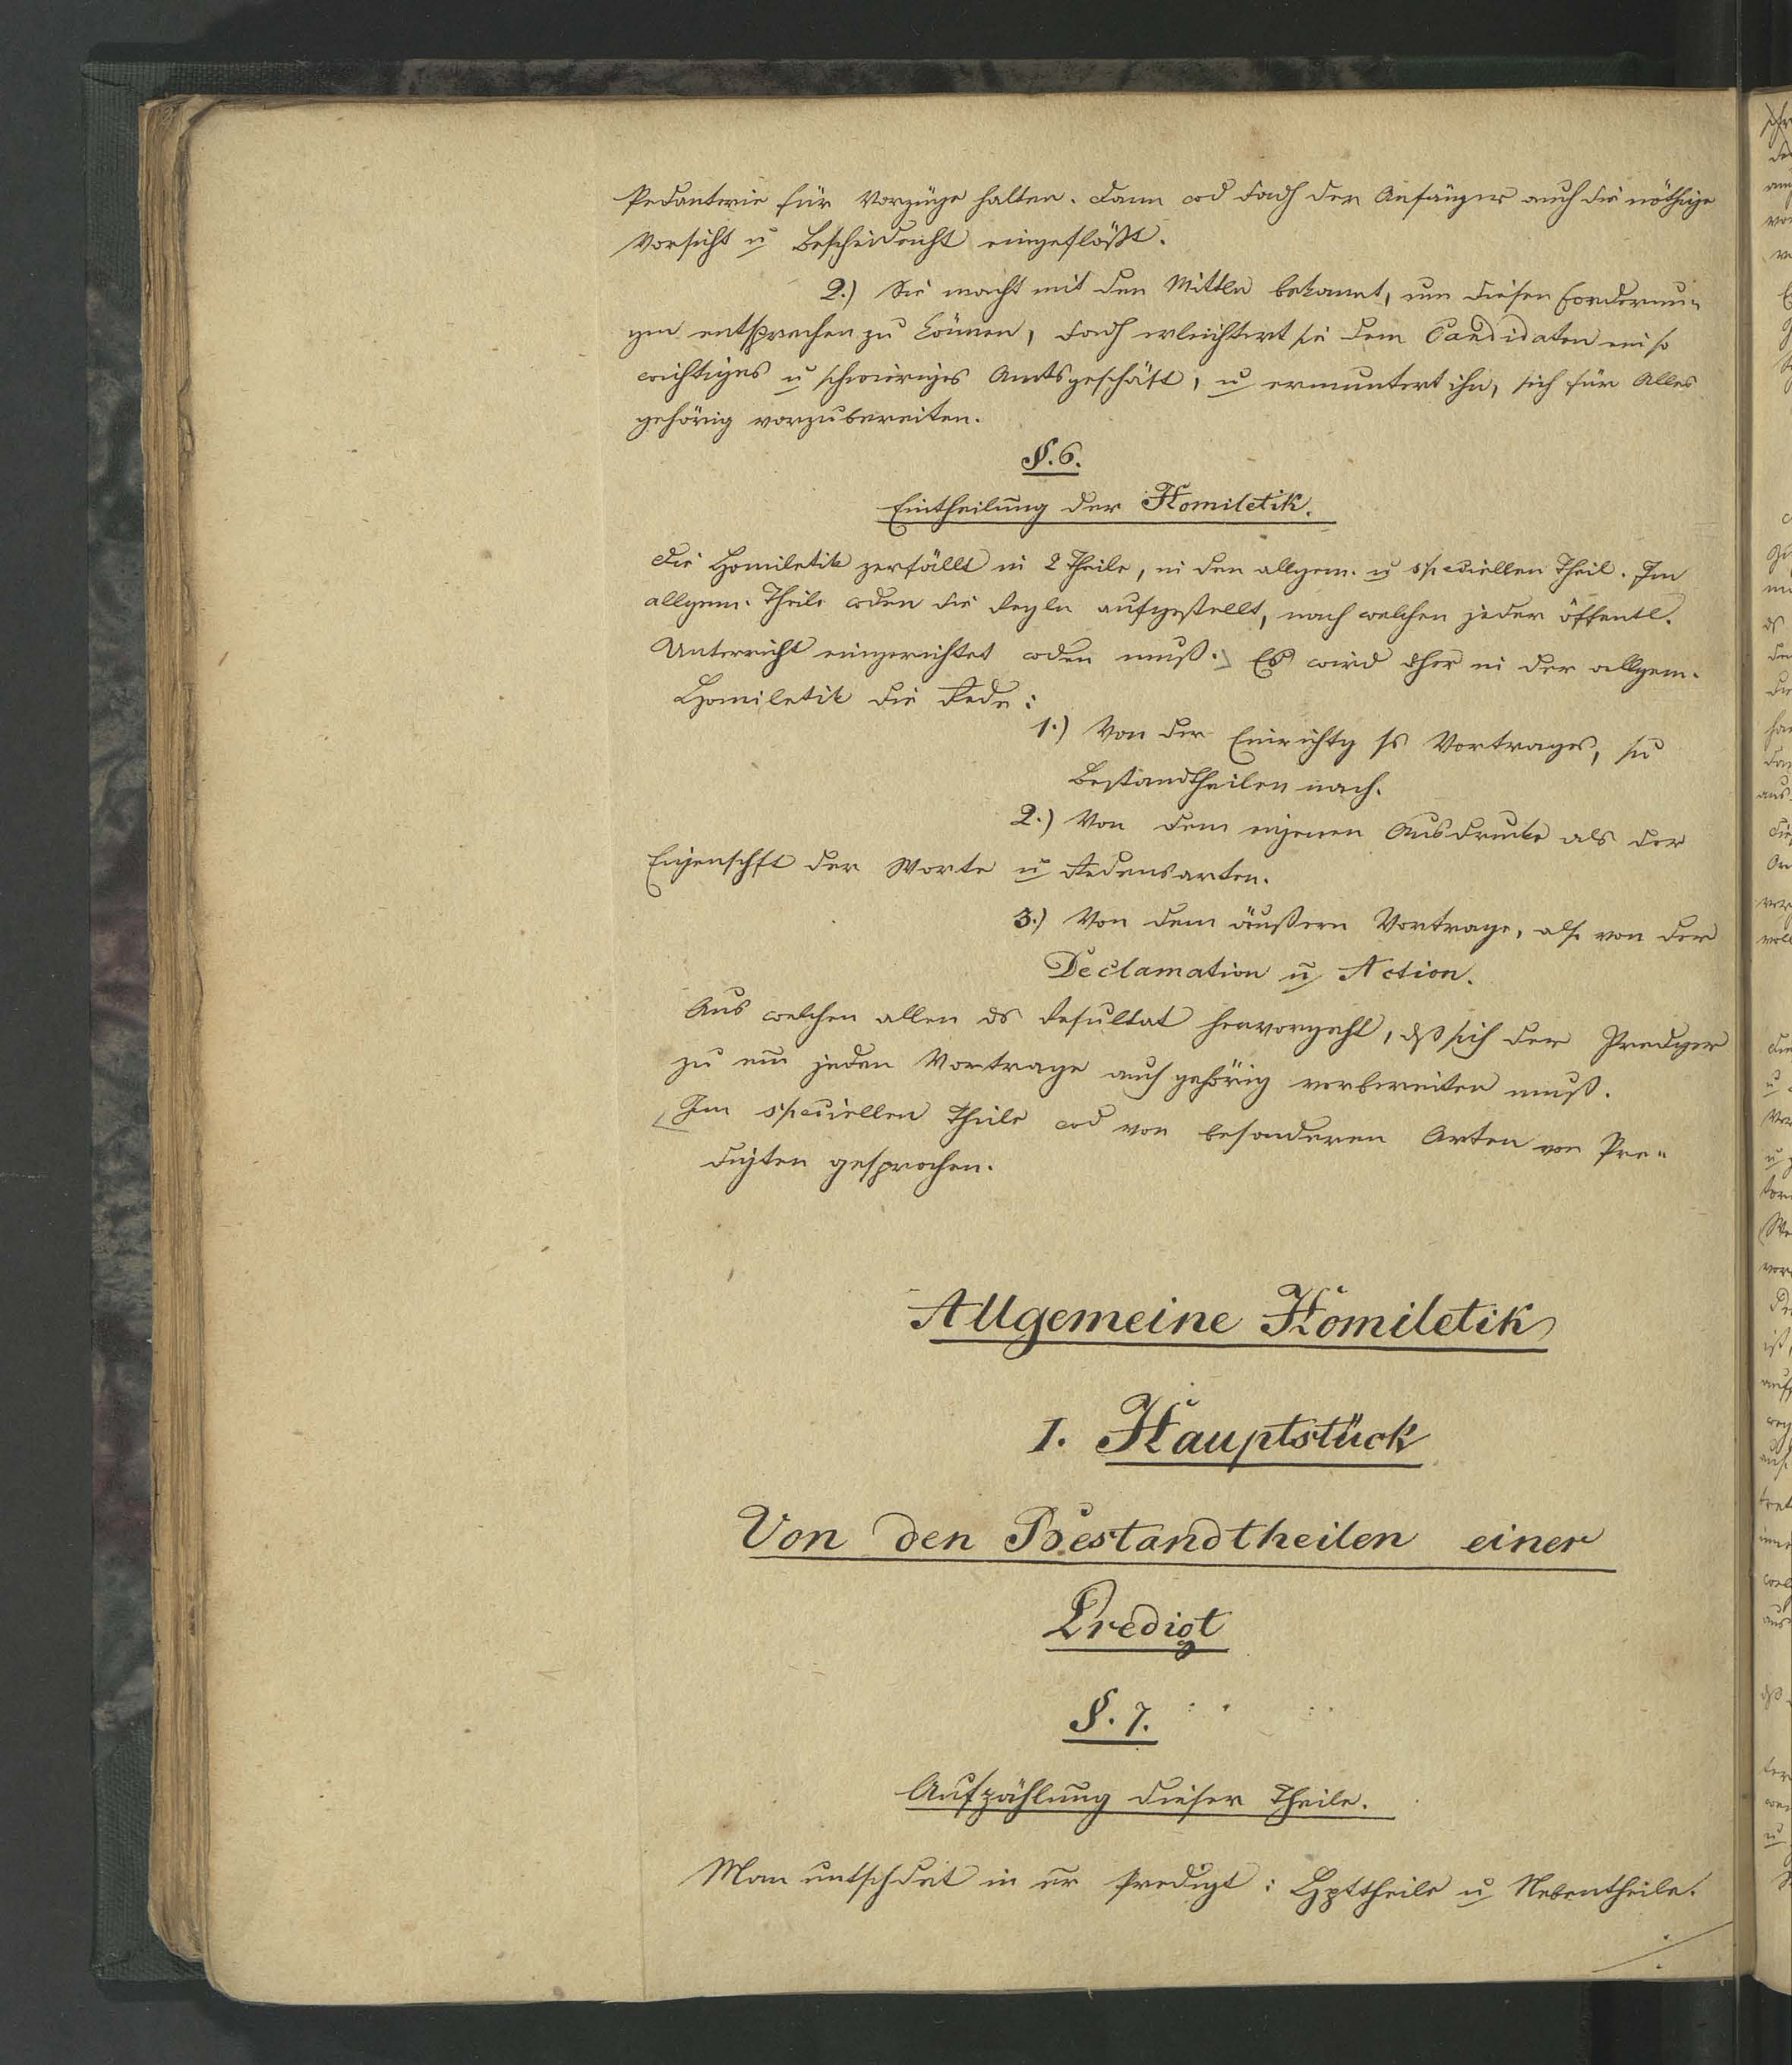 Pedanterie für Vorzüge halten. Dann wd dadh der Anfänger auch die nöthige
Vorsicht u Bescheidenht eingeflößt.
2.) Sie macht mit den Mitteln bekannt, um diesen Forderun-
gen entsprechen zu können, dadh erleichtert sie dem Candidaten ein so
wichtiges u schwieriges Amtsgeschäft, u ermuntert ihn, sich für Alles
gehörig vorzubereiten.
§. 6.
Eintheilung der Homiletik.
Die Homiletik zerfällt in 2 Theile, in den allgem. u speciellen Theil. Im
allgem. Theile wden die Regln aufgestellt, nach welchen jeder öffentl.
Unterricht eingerichtet wden muß. Es wird dher in der allgem.
Homiletik die Rede:
1.) Von der Einrichtg ss Vortrages, sn
Bestandtheilen nach.
2.) Von dem eigenen Ausdrucke als der
Eigenschft der Worte u Redensarten.
3.) Von dem äußern Vortrage, als von der
Declamation u Action.
Aus welchen allen ds Resultat hervorgeht, dß sich der Predger
zu em jeden Vortrage auch gehörig vorbereiten muß.
Im speciellen Theile wd von besonderen Arten von Pre-
digten gesprochen.
Allgemeine Homiletik
I. Hauptstück
Von den Bestandtheilen einer
Predigt
§. 7.
Aufzählung dieser Theile.
Man untschdet in er Predigt: Hpttheile u Nebentheile.